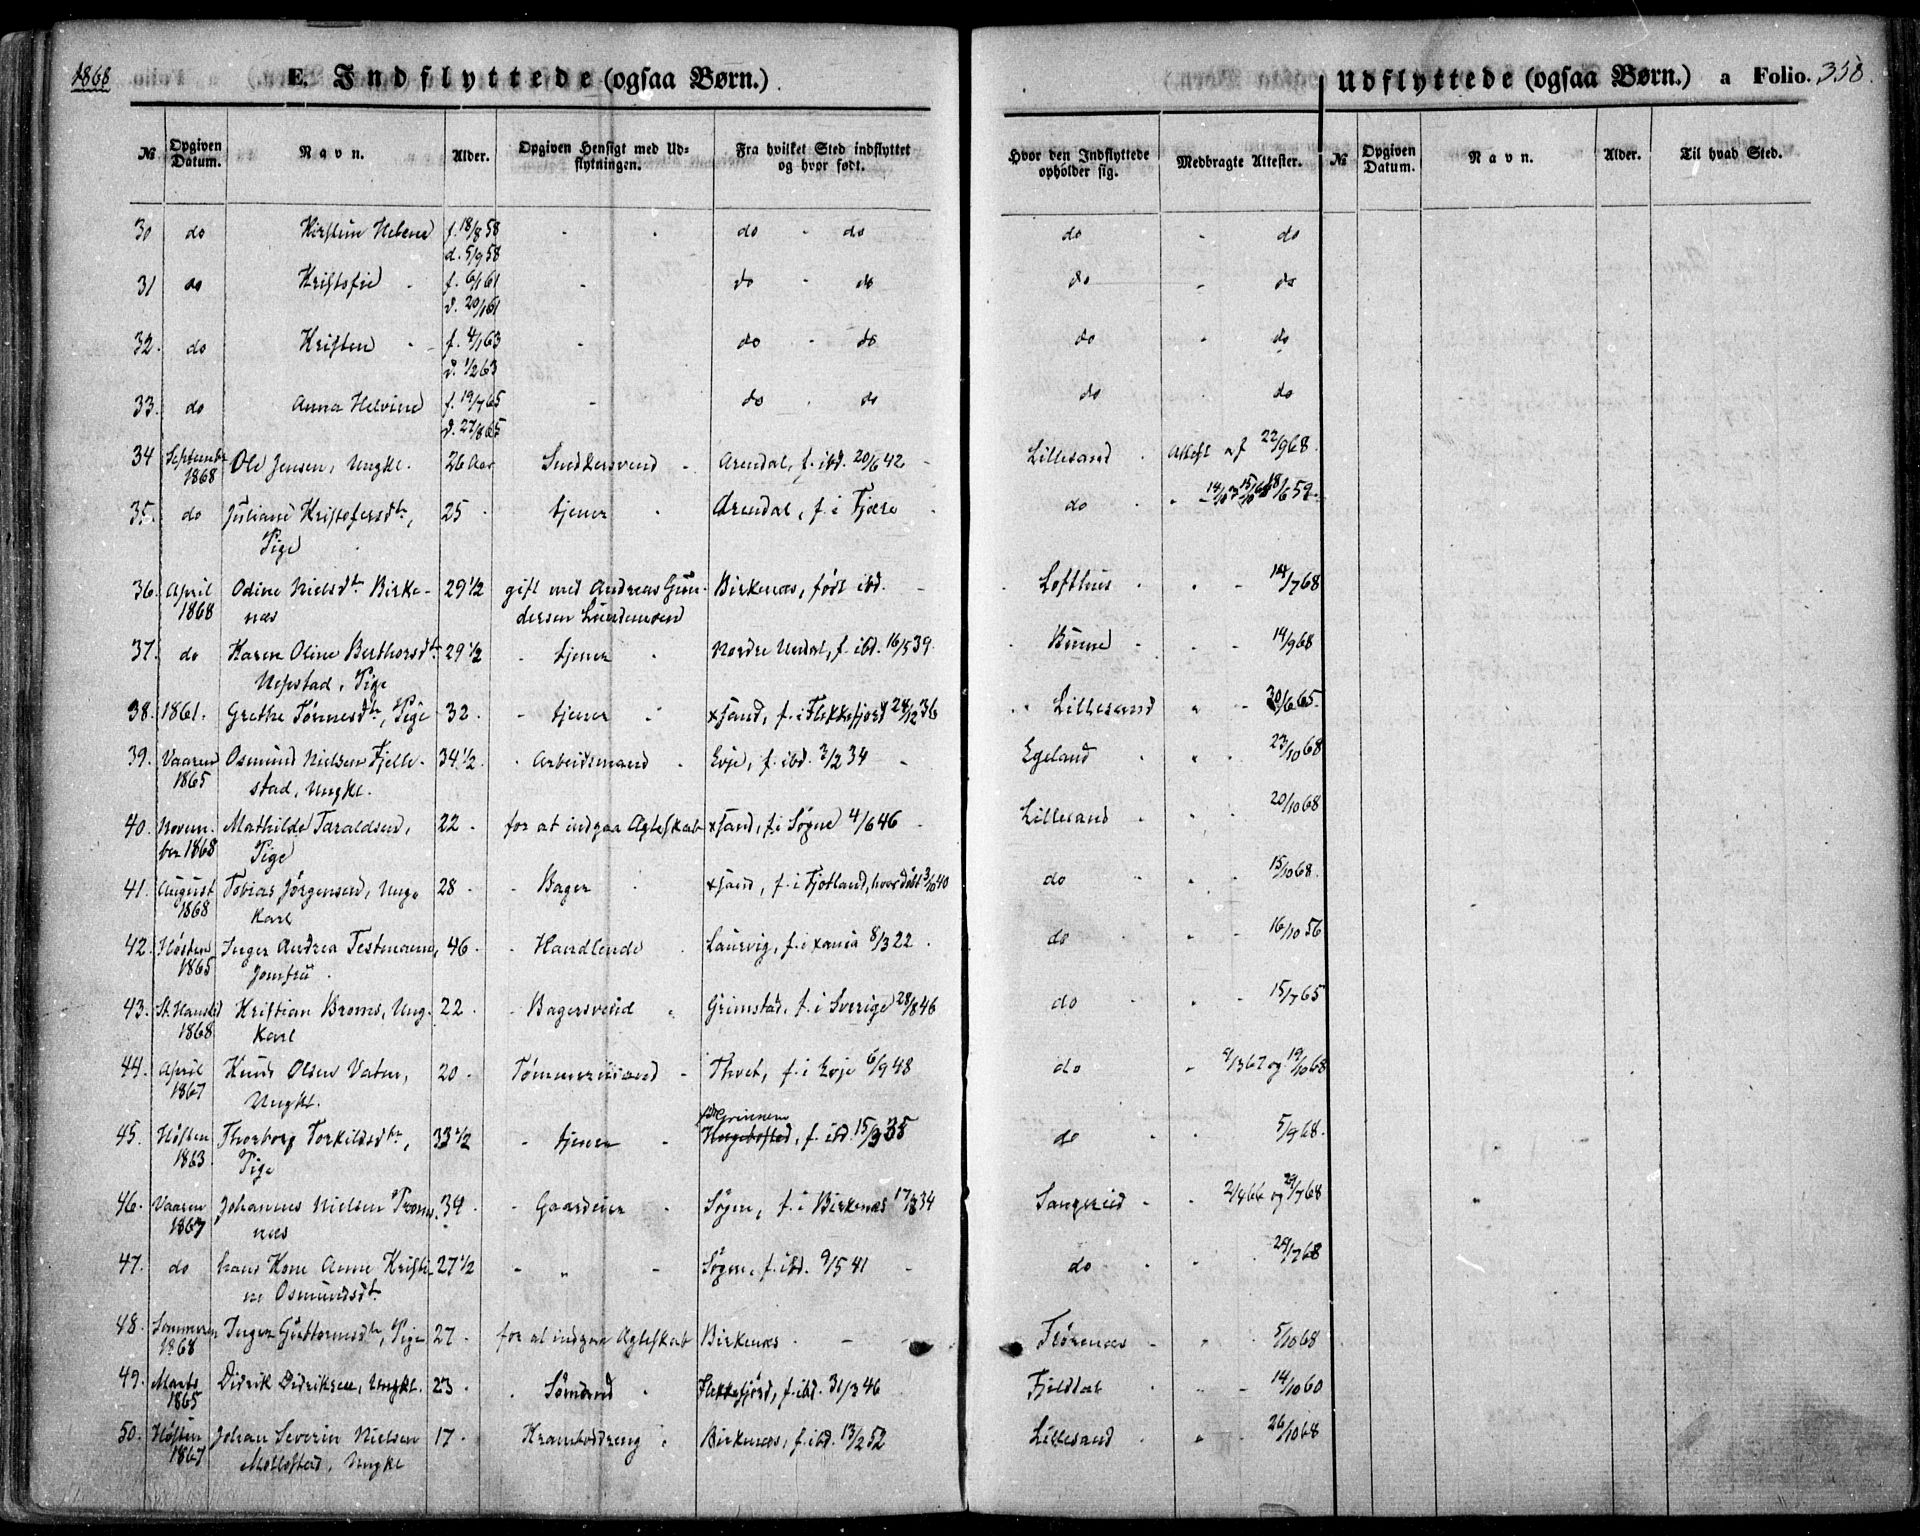 1868
E. Indflyttede (ogsaa Børn.)
Udflyttede (ogsaa Børn.) a Folio. 358.
№ Opgiven Datum. Navn. Alder. Opgiven Hensigt med Udflytningen. Fra hvilket Sted indflyttet og hvor født. Hvor den Indflyttede opholder sig. Medbragte Attester. № Opgiven Datum. Navn. Alder. Til hvad Sted.
30 do Kirstine Helene f. 18/8 58 - - do - do do - do
d. 5/9 58
31 do Kristofie - f. 6/1 61 - do - do do - do
d. 20/1 61
32. do Kristen - f. 4/1 63 - do - do do - do
d. 1/2 63
33. do Anna Helvine f. 19/7 65 - do - do do - do
d. 27/8 65
34 September Ole Jensen, Ungkl. 26 Aar Snedkersvend - Arendal, f. ibd. 20/6 42 - Lillesand - Attest af 22/9 68.
1868
35. do Juliane Kristofersdtr, 25 - tjener - Arendal, f. i Fjære - do
Pige
36. April Odine Nielsdtr Birke- 29 1/2 gift med Andreas Gun- Birkenæs, født ibd. - Lofthus - - - 14/7 68
1868 næs dersen
37. do Karen Oline Berthorsdtr 29 1/2 - tjener - Nordre Undal, f. ibd. 16/5 39. - - - 14/9 68
Pige
38. 1861. Grethe Tørresdtr, Pige 32. - tjener - xsand, f. i Flekkefjord 28/12 36 Lillesand - - 30/6 65.
39. Vaaren Osmund Nielsen Fjelle- 34 1/2. - Arbeidsmand - Evje, f. ibd. 3/2 34 - Egeland - - 23/10 68
1865 stad, Ungkl.
40. Novem- Mathilde Taraldsen, 22 - for at indgaa Ægteskab xsand, f. i Søgne 4/6 46 - Lillesand - - 20/10 68
ber 1868 Pige
41. August Tobias Jørgensen, Ung- 28 - - Bager - xsand, f. i Fjotland, hvor døbt 3/10 40 do - - 15/10 68.
1868 karl
42. Høsten Inger Andrea Testmann, 46 - - Handlende - Laurvig, f. i xania 8/3 22. do - - 16/10 56
1865 Jomfru.
43. St. Hanstid Kristian Broms, Ung- 22. - Bagersvend - Grimstad, f. i Sverige 28/8 46 do - - 15/7 65
1868 karl
44. April Knud Olsen Vatne, 20 - Tømmermand - Thvet, f. i Evje 6/9 48 do - 9/3 67 og 19/10 68
1867 Ungkl.
45. Høsten Thorborg Torkildsdtr, 33 1/2 - tjener - Hægebostad, f. ibd. 15/3 35 do - - 5/9 68.
1863 Pige
46. Vaaren Johannes Nielsen Trom- 34 - Gaardeier - Søgne, f. i Birkenæs 17/8 34 Sangereid - 2/4 66 og 29/7 68
1867 næs
47. do hans Kone Anne Kristi- 27 1/2 - „ - Søgne, f. ibd. 9/5 41 - do - - 29/7 68
ne Osmundsdtr
48. Sommeren Inger Guttormsdtr, Pige 27. for at indgaa Ægteskab Birkenæs. - - - - 5/10 68
1868
49. Marts Didrik Didriksen, Ungkl. 23 - - Sømand - Flekkefjord, f. ibd. 31/3 46 - - - 14/10 60
1865
50. Høsten Johan Severin Nielsen 17 - Kramboddreng - Birkenæs, f. ibd. 13/2 52 Lillesand - - 26/10 68
1867 Mollestad, Ungkl